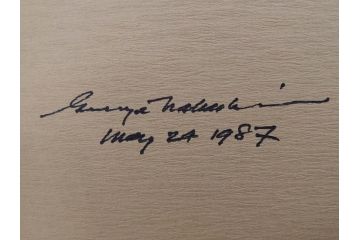 George Nakashima
May 24 1987